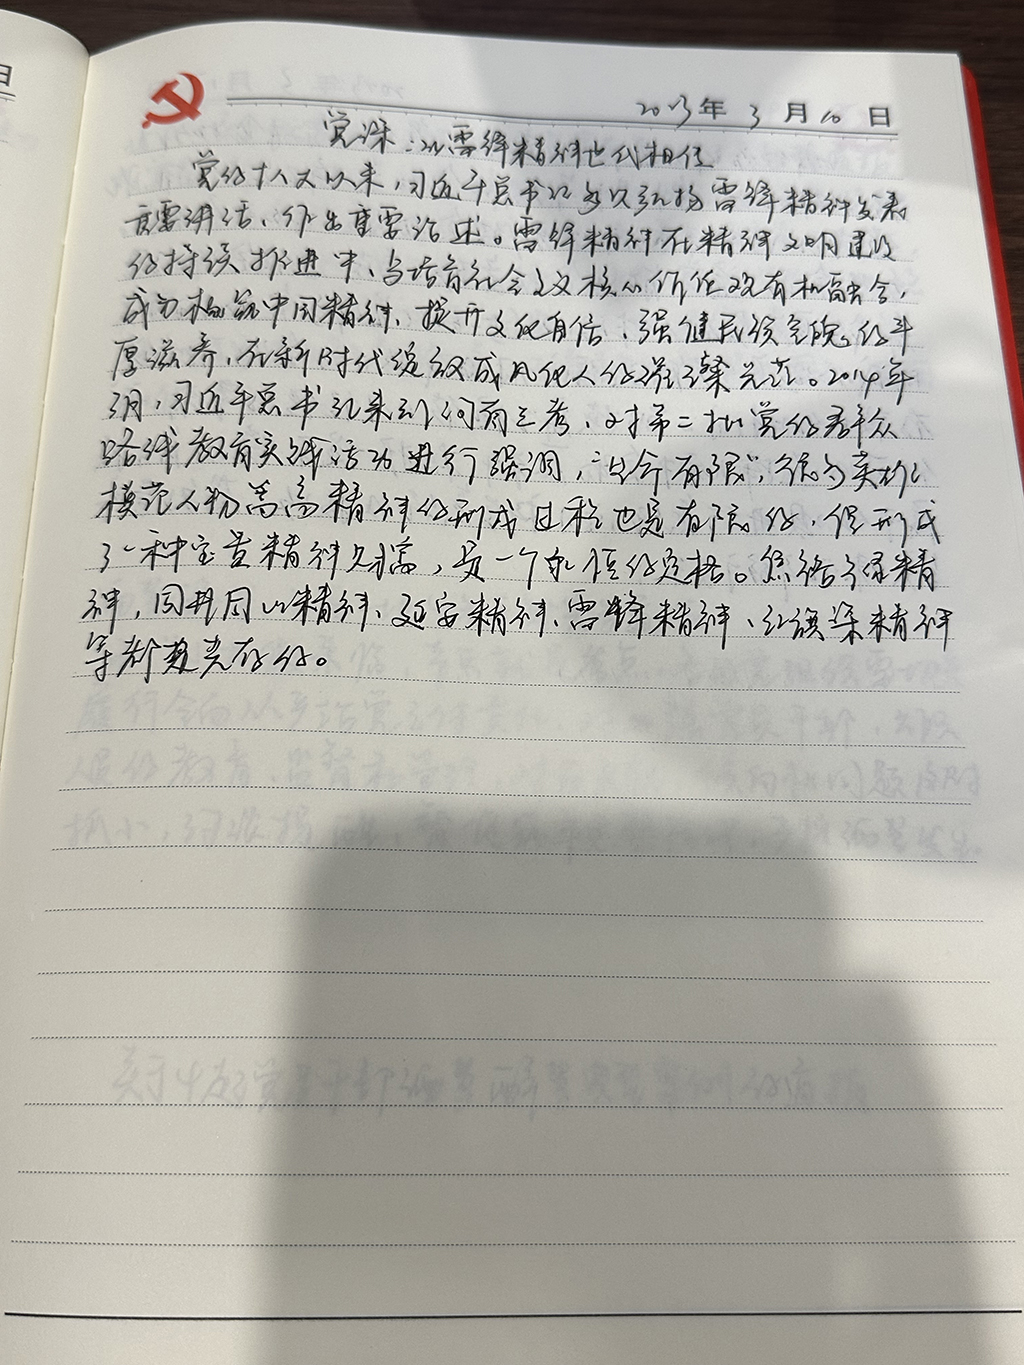 2023年3月10日
党课:让雷锋精神世代相传
党的十八大以来,习近平总书记多次就弘扬雷锋精神发表
重要讲话、作出重要论述。雷锋精神在精神文明建设
的持续推进中、与培育社会主义核心价值观有机融合,
成为构筑中国精神、提升文化自信、强健民族气魄的丰
厚滋养,在新时代绽放成风化人的璀璨光芒。2014年
3月,习近平总书记来到河南兰考,对第二批党的群众
路线教育实践活动进行强调,"生命有限",很多英雄
模范人物崇高精神的形成过程也是有限的,但形成
了一种宝贵精神财富,是一个永恒的定格。焦裕禄精
神,同井冈山精神、延安精神、雷锋精神、红旗渠精神
等都是共存的。